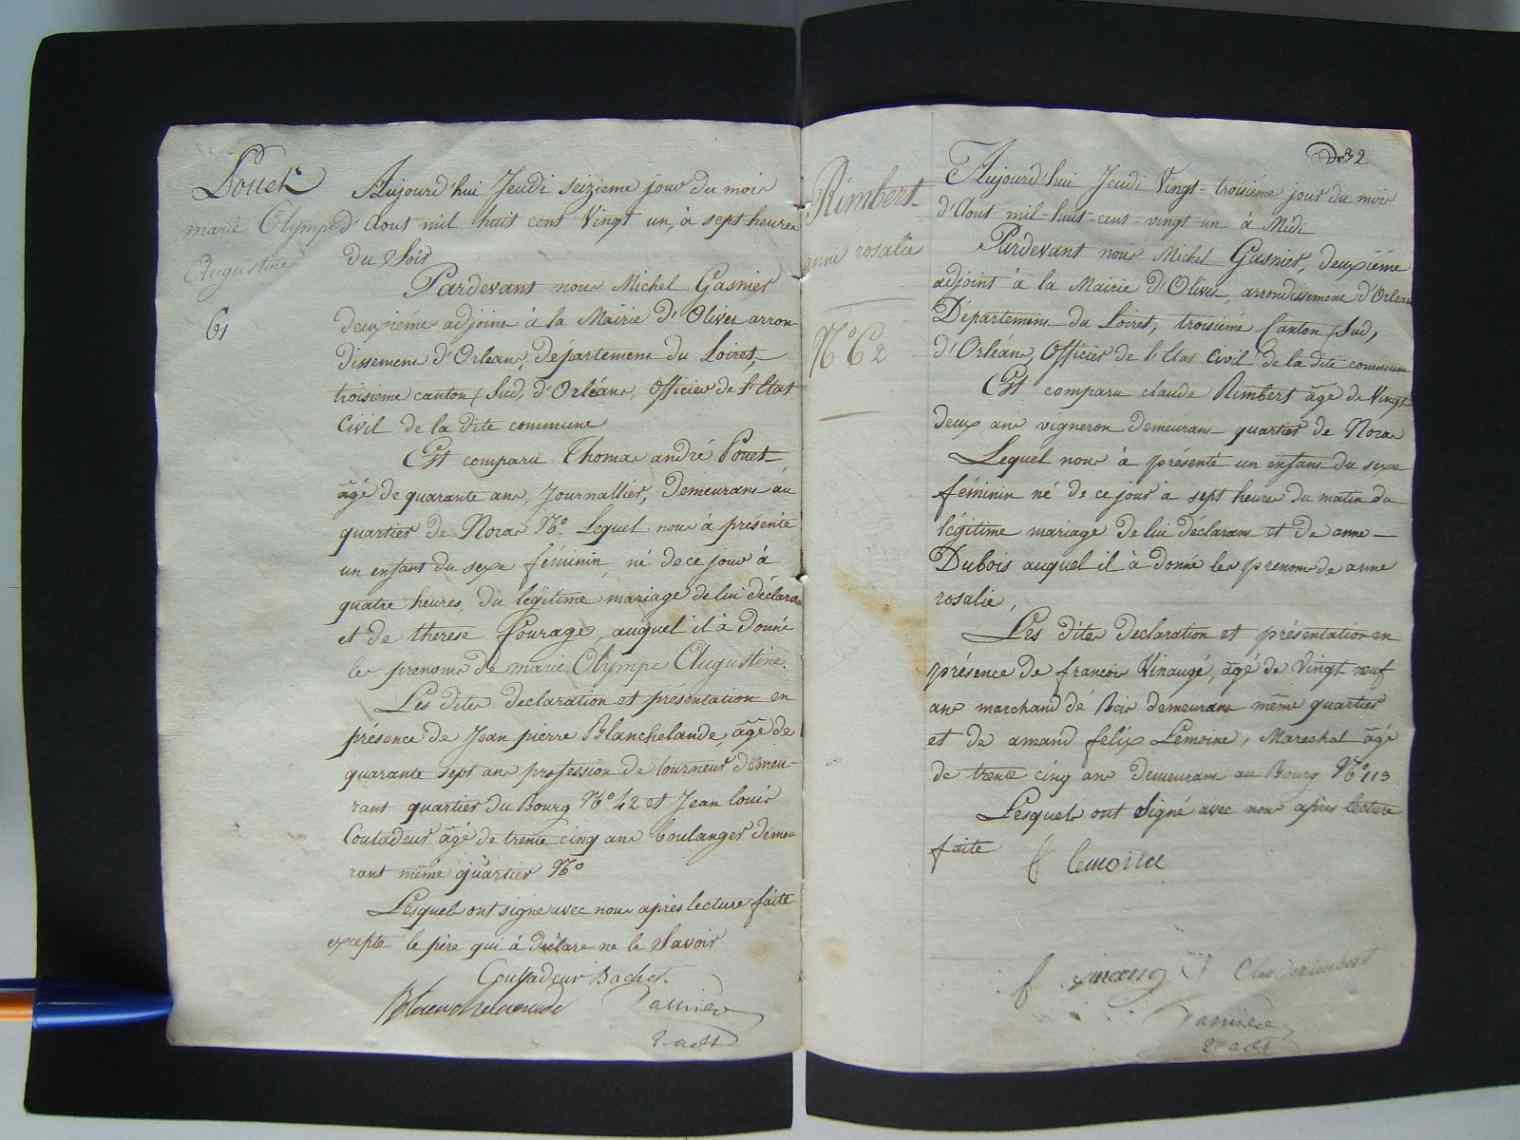 Pouet
marie Olympe
Augustine
61
Aujourd'hui Jeudi seizieme jour du mois
d'Aout mil huit cent Vingt un, à sept heures
du Soir
Pardevant nous Michel Gasnier
deuxiéme adjoint à la Mairie d'Olivet arron
dissement d'Orleans, département du Loiret,
troisieme canton (Sud) d'Orléans, Officier de l'Etat
Civil de la dite commune
Est comparu Thomas andré Pouet
âgé de quarante ans, Journallier, demeurant au
quartier de Noras No. Lequel nous à présenté
un enfant du sexe féminin, né de ce jour à
quatre heures, du légitime mariage de lui déclarant
et de therese fourage, auquel il à donné
les prenoms de marie Olympe Augustine.
Les dites declaration et presentation en
présence de Jean pierre Blanchelande, âgé de
quarante sept ans profession de tourneur, demeu-
rant quartier du Bourg No 42 et Jean louis
Coutadeur âgé de trente cinq ans boulanger demeu
rant même quartier No
Lesquels ont signé avec nous après lecture faite
excepté le père qui à déclaré ne le Savoir
Coutadeur
Blanchelande
Gasnier
2e adjt
32
Rimbert
anne rosalie
No 62
Aujourd'hui Jeudi Vingt-troisiéme jour du mois
d'Aout mil-huit-cent-vingt-un à Midi
Pardevant nous Michel Gasnier, deuxiéme
adjoint à la Mairie d'Olivet, arrondissement d'Orleans
Département du Loiret, troisiéme Canton (Sud)
d'Orléans, Officier de l'Etat Civil de la dite commune
Est comparu claude Rimbert âgé de Vingt
deux ans vigneron demeurant quartier de Noras
Lequel nous à présenté un enfant du sexe
féminin né de ce jour à sept heures du matin du
légitime mariage de lui déclarant et de anne
Dubois auquel il à donné les prenoms de anne
rosalie,
Les dites declaration et présentation en
présence de francois Vinaugé, âgé de vingt neuf
ans marchand de Bois demeurant même quartier
et de amand felix Lemoine, Marechal âgé
de trente cinq ans demeurant au Bourg No 113
Lesquels ont Signé avec nous après lecture
faite
f lemoine
f vinaugé
Claude rimbert
Gasnier
2e adjt